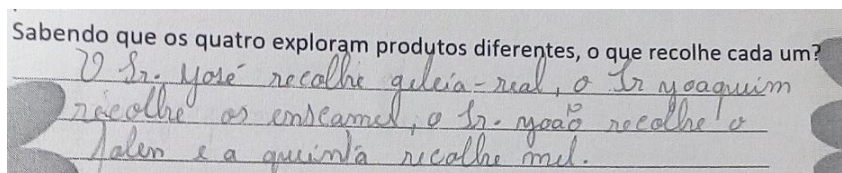 Sabendo que os quatro exploram produtos diferentes, o que recolhe cada um?
O Sr. José recolhe geleia-real, o Sr Joaquim
recolhe os enxames, o Sr. João recolhe o
polen e a quinta recolhe mel.